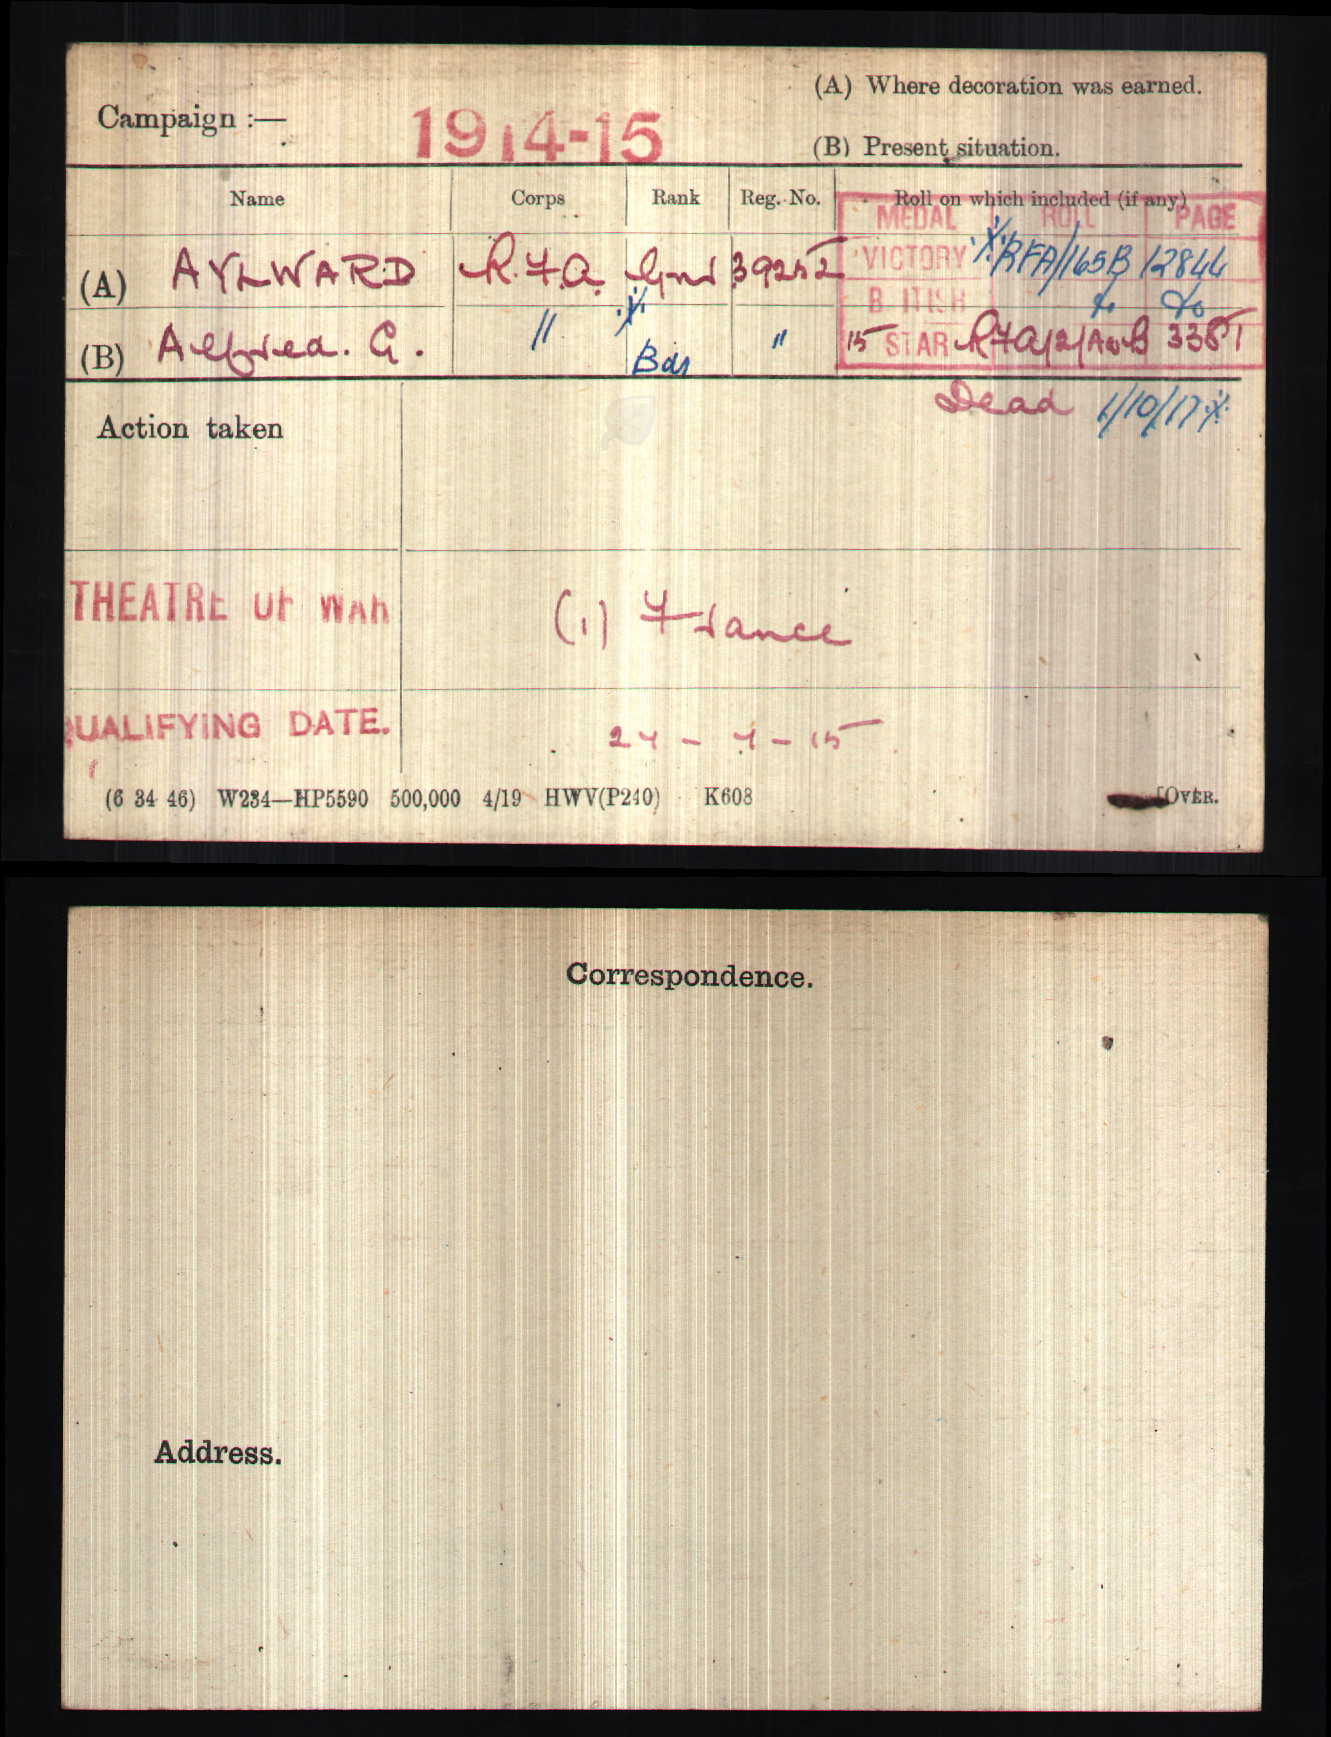 (A) Where decoration was earned.
Campaign :— 1914-15
(B) Present situation.
Name Corps Rank Reg. No. Roll on which included (if any)
MEDAL ROLL PAGE
(A) AYLWARD R.F.A. Gnr 39252 VICTORY RFA/165B 12844
BRITISH do do
(B) Alfred. G. " Bdr " 15 STAR RFA/2/A&B 3381
Dead 1/10/17
Action taken
THEATRE OF WAR (1) France
QUALIFYING DATE. 24 - 7 - 15
(6 34 46) W234—HP5590 500,000 4/19 HWV(P240) K608 [OVER.
Correspondence.
Address.